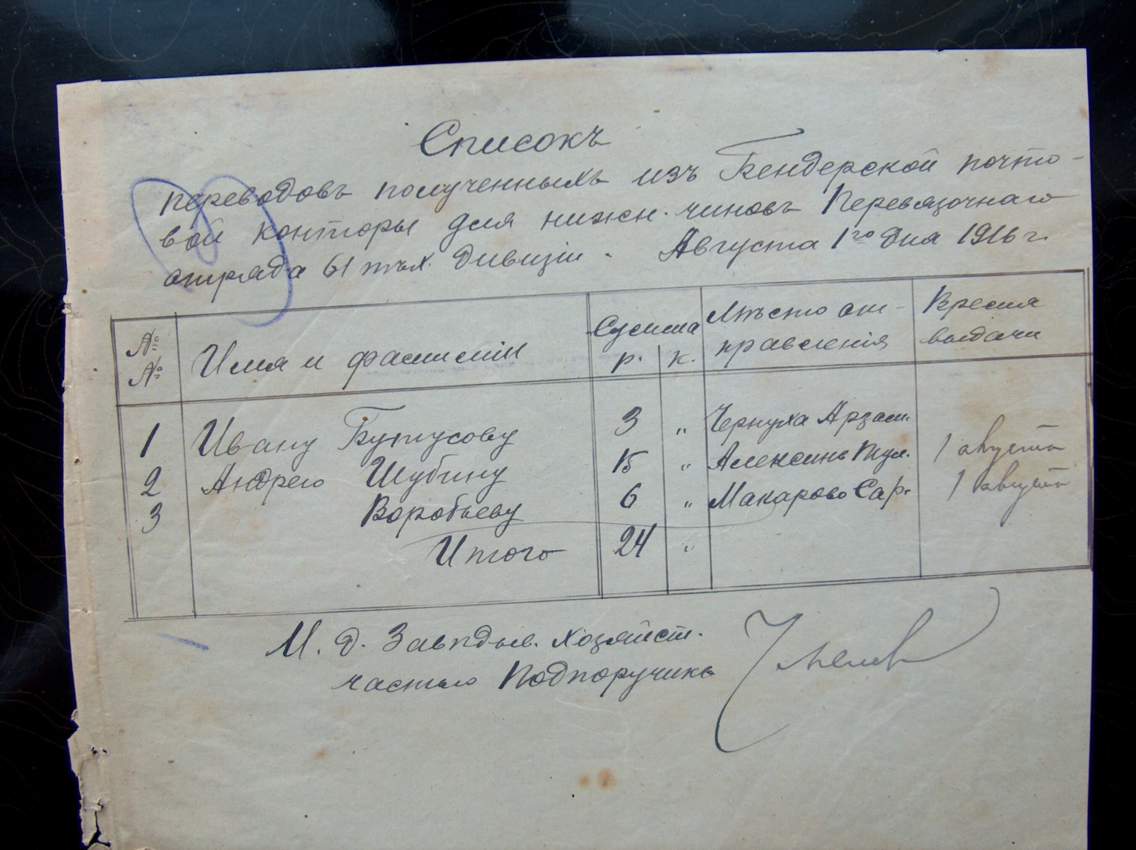 Списокъ
переводовъ полученныхъ изъ Бендерской почто-
вой конторы для нижн. чиновъ Перевязочнаго
отряда 61 пѣх. дивизіи. Августа 1го дня 1916 г.
№ № Имя и фамиліи Сумма р. к. Мѣсто от-правленія Время выдачи
1 Ивану Бутусову 3 „ Чернуха Арзам.
2 Андрею Шубину 15 „ Алексинъ Тул. 1 августа
3 Воробьеву 6 „ Макарово Сар. 1 августа
Итого 24 „
И. д. Завѣдыв. хозяйст.
частью Подпоручикъ